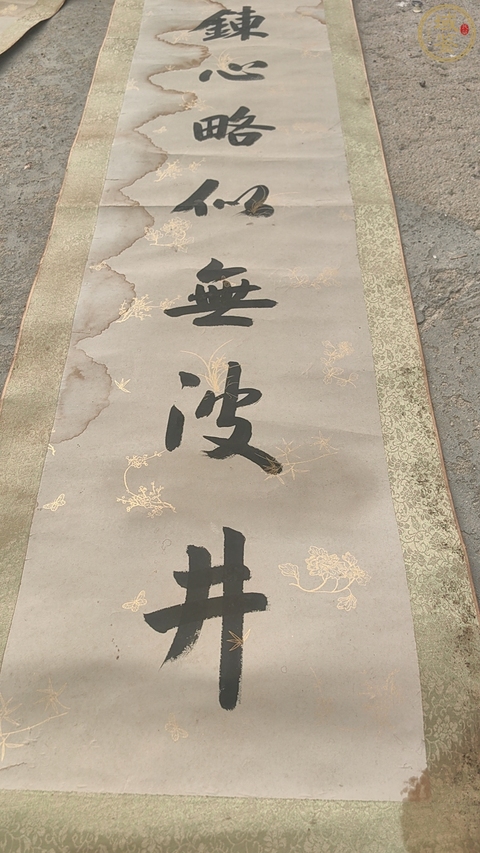 鍊心略似無波井